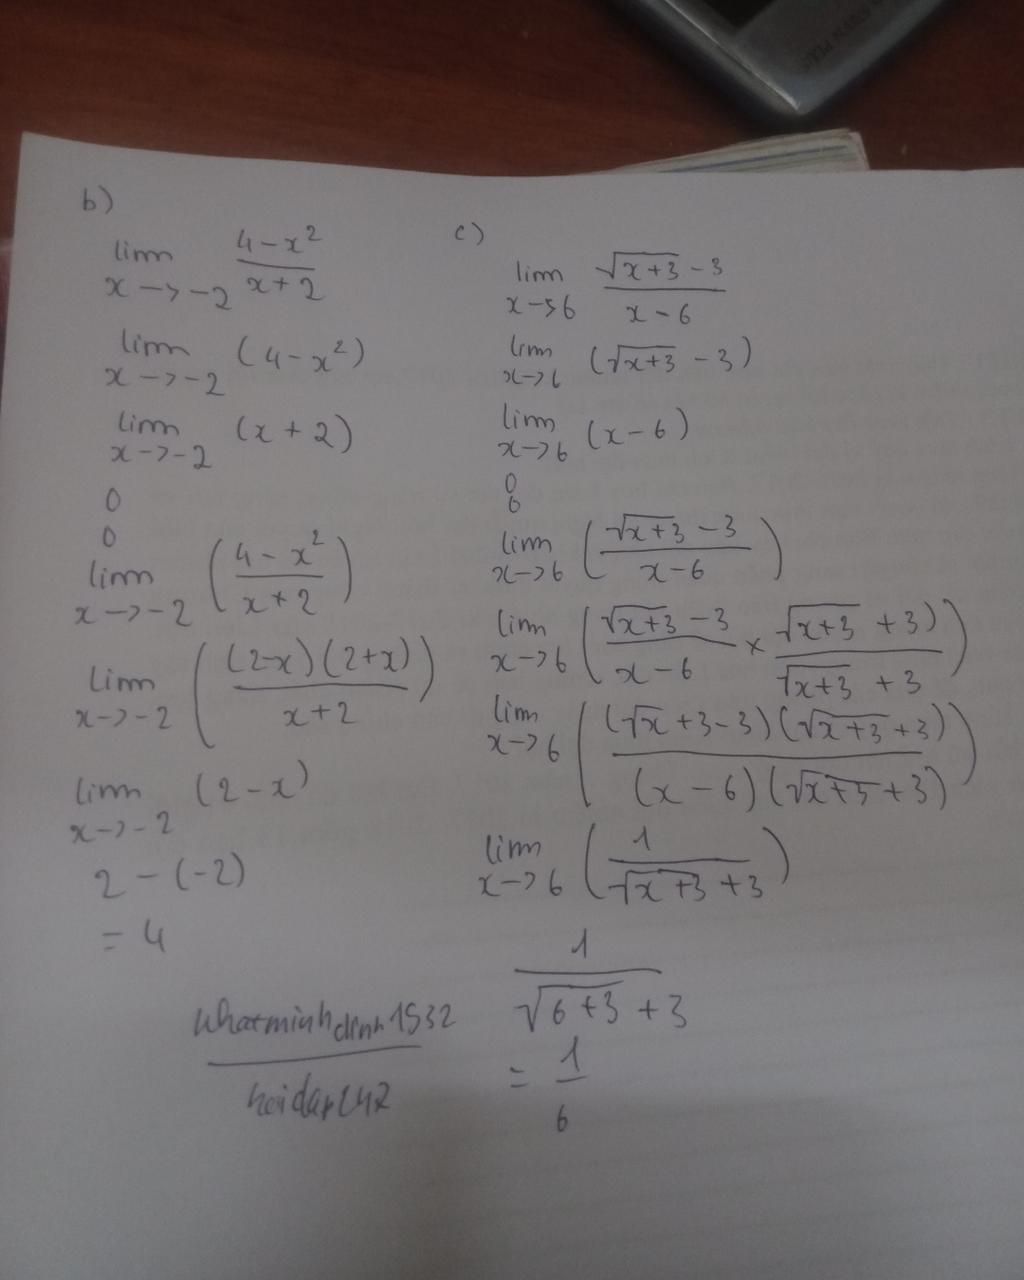 b)
lim x->-2 (4-x²)/(x+2)
lim x->-2 (4-x²)
lim x->-2 (x+2)
0
0
lim x->-2 ((4-x²)/(x+2))
lim x->-2 ((2-x)(2+x)/(x+2))
lim x->-2 (2-x)
2-(-2)
= 4
c)
lim x->6 (√(x+3) -3)/(x-6)
lim x->6 (√(x+3) -3)
lim x->6 (x-6)
0
0
lim x->6 ((√(x+3) -3)/(x-6))
lim x->6 ((√(x+3) -3)/(x-6) × (√(x+3) +3))/(√(x+3) +3))
lim x->6 ((√x +3-3)(√(x+3) +3)/((x-6)(√(x+3) +3)))
lim x->6 (1/(√(x+3) +3))
1/(√(6+3) +3)
= 1/6